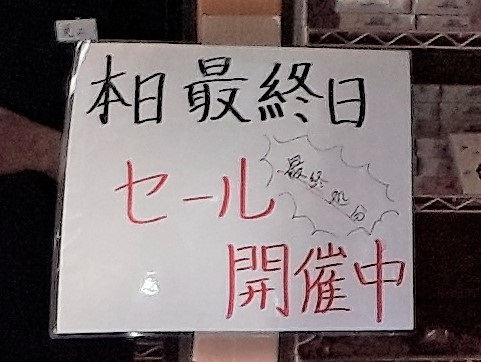 本日最終日
セール
最終処分
開催中